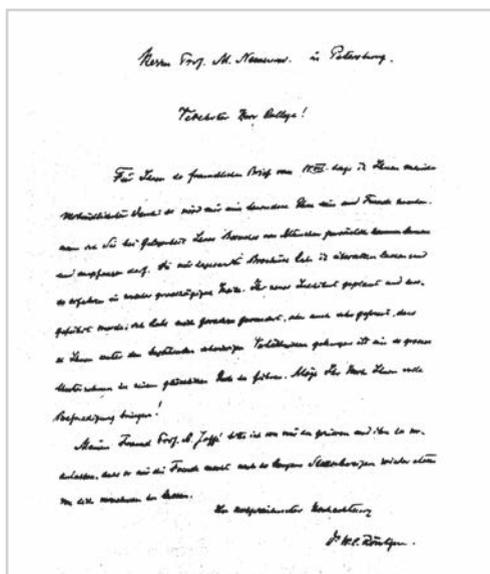 Herrn Prof. M. Nemenow in Petersburg.
Verehrter Herr Kollege!
Für Ihren so freundlichen Brief vom sage ich Ihnen meinen
Dank; es wird mir eine besondere Ehre sein und Freude machen,
wenn ich Sie bei Gelegenheit Ihres Besuches von München persönlich kennen lernen
und empfangen darf. Die mir Brochüre habe ich lassen und
so erfahren in welcher grosszügigen Weise Ihr neues Institut geplant und aus-
geführt wurde; ich habe mich geradezu gewundert, aber auch sehr gefreut, dass
es Ihnen unter den bestehenden schwierigen Verhältnissen gelungen ist ein so grosses
Unternehmen zu einem glücklichen Ende zu führen. Möge Ihr Werk Ihnen volle
Befriedigung bringen!
Meinen Freund Prof. A. Joffé bitte ich von mir zu grüssen und ihn zu ver-
anlassen, dass er mir die Freude macht nach so langem Stillschweigen wieder etwas
von sich vernehmen zu lassen.
In ausgezeichneter Hochachtung
Dr. W. C. Röntgen.